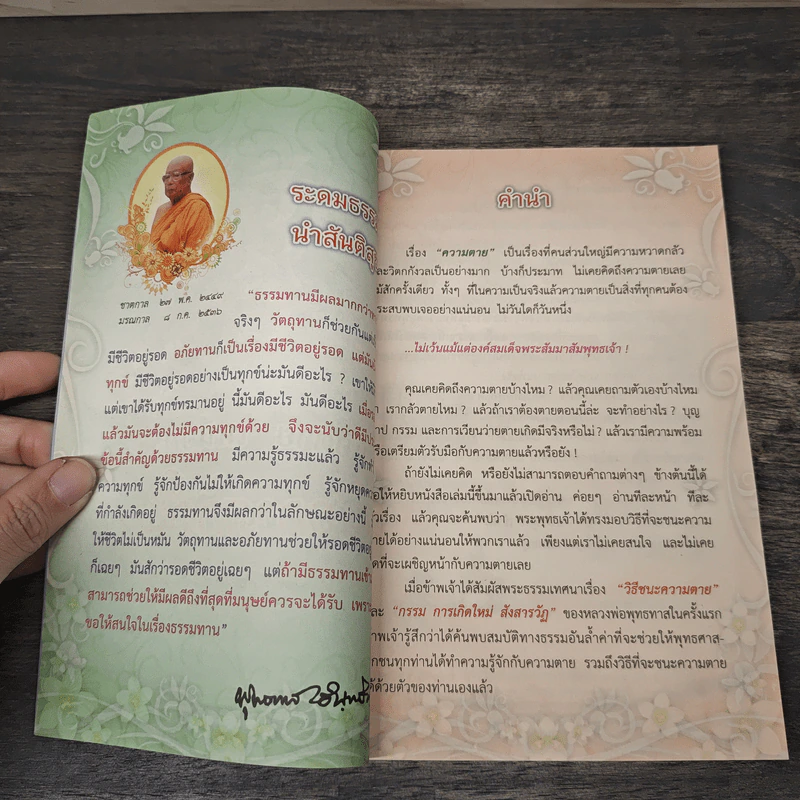 ระดมธรร
นำสันติสุ
ชาตกาล ๒๗ พ.ค. ๒๔๔๙
มรณกาล ๘ ก.ค. ๒๕๓๖
“ธรรมทานมีผลมากกว่า
จริงๆ วัตถุทานก็ช่วยกันแต่
มีชีวิตอยู่รอด อภัยทานก็เป็นเรื่องมีชีวิตอยู่รอด แต่มัน
ทุกข์ มีชีวิตอยู่รอดอย่างเป็นทุกข์น่ะมันดีอะไร ? เขาให้
แต่เขาได้รับทุกข์ทรมานอยู่ นี้มันดีอะไร มันดีอะไร
แล้วมันจะต้องไม่มีความทุกข์ด้วย จึงจะนับว่าดีมี
ข้อนี้สำคัญด้วยธรรมทาน มีความรู้ธรรมะแล้ว รู้จัก
ความทุกข์ รู้จักป้องกันไม่ให้เกิดความทุกข์ รู้จักหยุด
ที่กำลังเกิดอยู่ ธรรมทานจึงมีผลกว่าในลักษณะอย่างนี้
ให้ชีวิตไม่เป็นหมัน วัตถุทานและอภัยทานช่วยให้รอดชีวิตอยู่
ก็เฉยๆ มันสักว่ารอดชีวิตอยู่เฉยๆ แต่ถ้ามีธรรมทานเข้า
สามารถช่วยให้มีผลดีถึงที่สุดที่มนุษย์ควรจะได้รับ
ขอให้สนใจในเรื่องธรรมทาน”
คำนำ
เรื่อง “ความตาย” เป็นเรื่องที่คนส่วนใหญ่มีความหวาดกลัว
ละวิตกกังวลเป็นอย่างมาก บ้างก็ประมาท ไม่เคยคิดถึงความตายเลย
ม้สักครั้งเดียว ทั้งๆ ที่ในความเป็นจริงแล้วความตายเป็นสิ่งที่ทุกคนต้อง
ระสบพบเจออย่างแน่นอน ไม่วันใดก็วันหนึ่ง
...ไม่เว้นแม้แต่องค์สมเด็จพระสัมมาสัมพุทธเจ้า !
คุณเคยคิดถึงความตายบ้างไหม ? แล้วคุณเคยถามตัวเองบ้างไหม
า เรากลัวตายไหม ? แล้วถ้าเราต้องตายตอนนี้ล่ะ จะทำอย่างไร ? บุญ
าป กรรม และการเวียนว่ายตายเกิดมีจริงหรือไม่ ? แล้วเรามีความพร้อม
รือเตรียมตัวรับมือกับความตายแล้วหรือยัง !
ถ้ายังไม่เคยคิด หรือยังไม่สามารถตอบคำถามต่างๆ ข้างต้นนี้ได้
อให้หยิบหนังสือเล่มนี้ขึ้นมาแล้วเปิดอ่าน ค่อยๆ อ่านทีละหน้า ทีละ
รื่อง แล้วคุณจะค้นพบว่า พระพุทธเจ้าได้ทรงมอบวิธีที่จะชนะความ
ายได้อย่างแน่นอนให้พวกเราแล้ว เพียงแต่เราไม่เคยสนใจ และไม่เคย
ิดที่จะเผชิญหน้ากับความตายเลย
เมื่อข้าพเจ้าได้สัมผัสพระธรรมเทศนาเรื่อง “วิธีชนะความตาย”
ละ “กรรม การเกิดใหม่ สังสารวัฏ” ของหลวงพ่อพุทธทาสในครั้งแรก
าพเจ้ารู้สึกว่าได้ค้นพบสมบัติทางธรรมอันล้ำค่าที่จะช่วยให้พุทธศาส-
กชนทุกท่านได้ทำความรู้จักกับความตาย รวมถึงวิธีที่จะชนะความตาย
ด้ด้วยตัวของท่านเองแล้ว